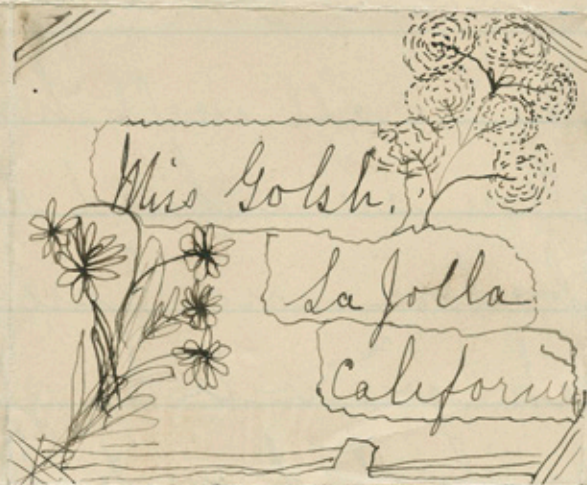 Miss Golsh.
La Jolla
California